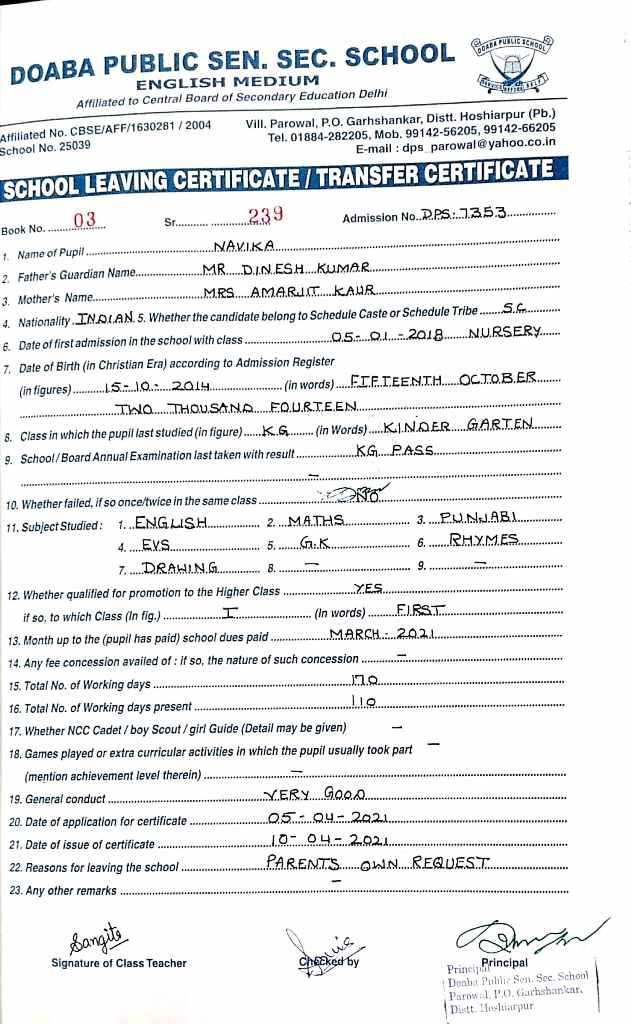 DOABA PUBLIC SEN. SEC. SCHOOL
ENGLISH MEDIUM
Affiliated to Central Board of Secondary Education Delhi
DOABA PUBLIC SCHOOL
SERVICE BEFORE SELF
Affiliated No. CBSE/AFF/1630281 / 2004
School No. 25039
Vill. Parowal, P.O. Garhshankar, Distt. Hoshiarpur (Pb.)
Tel. 01884-282205, Mob. 99142-56205, 99142-66205
E-mail : dps_parowal@yahoo.co.in
SCHOOL LEAVING CERTIFICATE / TRANSFER CERTIFICATE
Book No. 03 Sr. 239 Admission No. DPS-7353
1. Name of Pupil NAVIKA
2. Father's Guardian Name MR DINESH KUMAR
3. Mother's Name MRS AMARJIT KAUR
4. Nationality INDIAN 5. Whether the candidate belong to Schedule Caste or Schedule Tribe SC
6. Date of first admission in the school with class 05-01-2018 NURSERY
7. Date of Birth (in Christian Era) according to Admission Register
(in figures) 15-10-2014 (in words) FIFTEENTH OCTOBER
TWO THOUSAND FOURTEEN
8. Class in which the pupil last studied (in figure) K.G (in Words) KINDER GARTEN
9. School / Board Annual Examination last taken with result KG PASS
–
10. Whether failed, if so once/twice in the same class NO
11. Subject Studied : 1. ENGLISH 2. MATHS 3. PUNJABI
4. EVS 5. G.K 6. RHYMES
7. DRAWING 8. – 9. –
12. Whether qualified for promotion to the Higher Class YES
if so, to which Class (In fig.) I (In words) FIRST
13. Month up to the (pupil has paid) school dues paid MARCH-2021
14. Any fee concession availed of : if so, the nature of such concession –
15. Total No. of Working days 170
16. Total No. of Working days present 110
17. Whether NCC Cadet / boy Scout / girl Guide (Detail may be given) –
18. Games played or extra curricular activities in which the pupil usually took part –
(mention achievement level therein) –
19. General conduct VERY GOOD
20. Date of application for certificate 05-04-2021
21. Date of issue of certificate 10-04-2021
22. Reasons for leaving the school PARENTS OWN REQUEST
23. Any other remarks –
Sangita
Signature of Class Teacher Checked by Principal
Principal
Doaba Public Sen. Sec. School
Parowal, P.O. Garhshankar,
Distt. Hoshiarpur